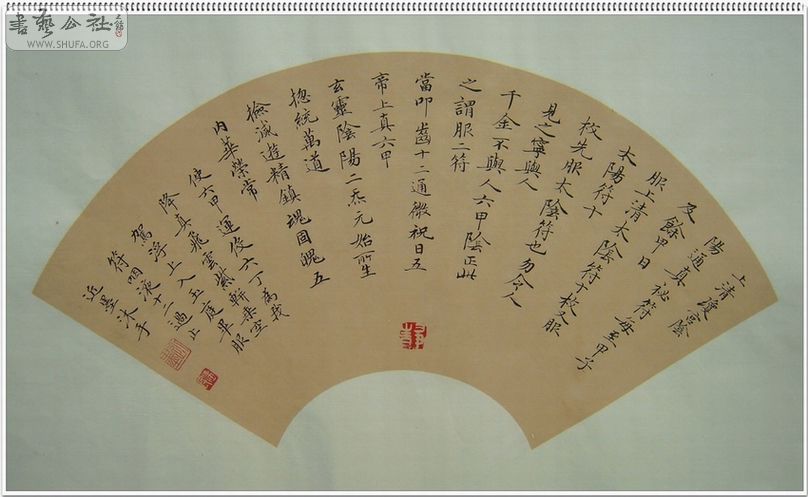 書藝公社
WWW.SHUFA.ORG
上清瓊宮陰
陽通真祕符每至甲子
及餘甲日
服上清太陰符十枚又服
太陽符十
枚先服太陰符也勿令人
見之寧與人
千金不與人六甲陰正此
之謂服二符
當叩齒十二通微祝曰五
帝上真六甲
玄靈陰陽二炁元始所生
揔統萬道
撿滅遊精鎮魂固魄五
內華榮常
使六甲運役六丁為我
降真飛雲紫軿乘空
駕浮上入玉庭畢服
符咽液十二過止
近墨沐手